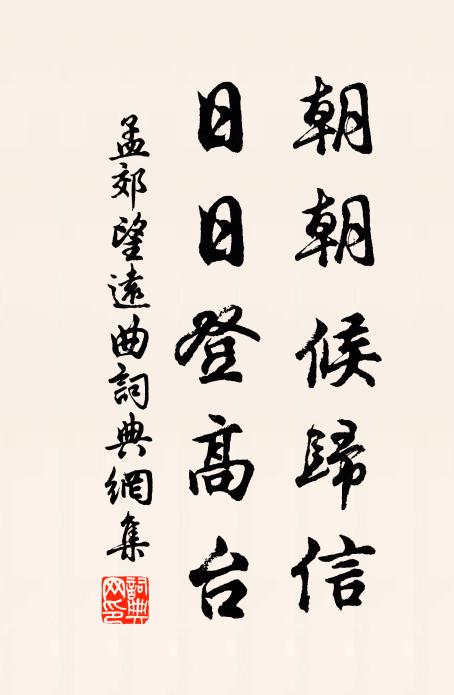 朝朝候歸信
日日登高台
孟郊望遠曲詞典網集
詞典网印